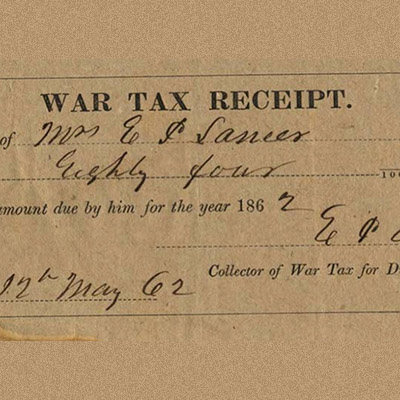 WAR TAX RECEIPT.
of Mrs E P Lancer
Eighty four 100
amount due by him for the year 1862
E P
12th May 62 Collector of War Tax for D